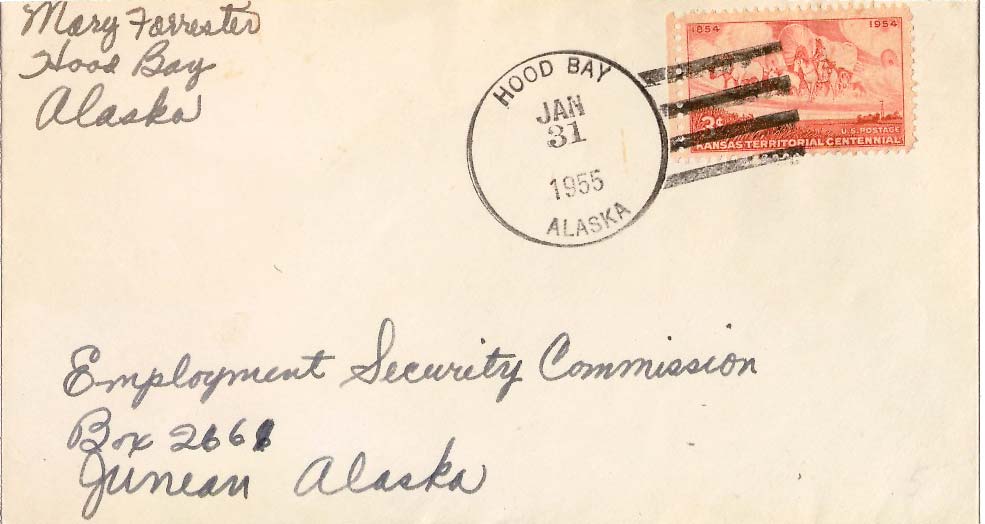 Mary Forrester
Hood Bay
Alaska
HOOD BAY
JAN
31
1955
ALASKA
1854 1954
3¢
U.S. POSTAGE
KANSAS TERRITORIAL CENTENNIAL
Employment Security Commission
Box 2661
Juneau Alaska